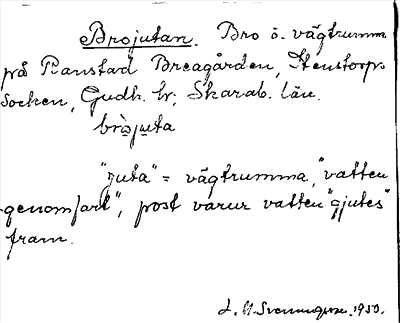 Brojutan. Bro ö. vägtrumma
på Ranstad Breagården, Stenstorps
socken, Gudh. hr; Skarab. län.
bròjuta
"juta" = vägtrumma, "vatten
genomfart", post varur vatten "gjutes"
fram.
1950.